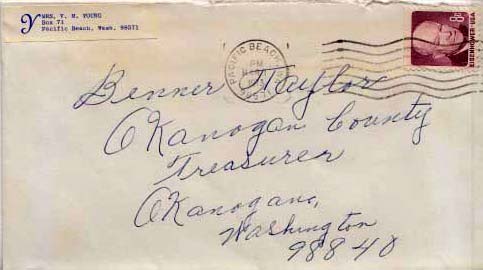 MRS. V. M. YOUNG
Box 71
Pacific Beach, Wash. 98571
PACIFIC BEACH
PM
8c
EISENHOWER·USA
Benner Taylor
Okanogan County
Treasurer
Okanogan,
Washington
98840